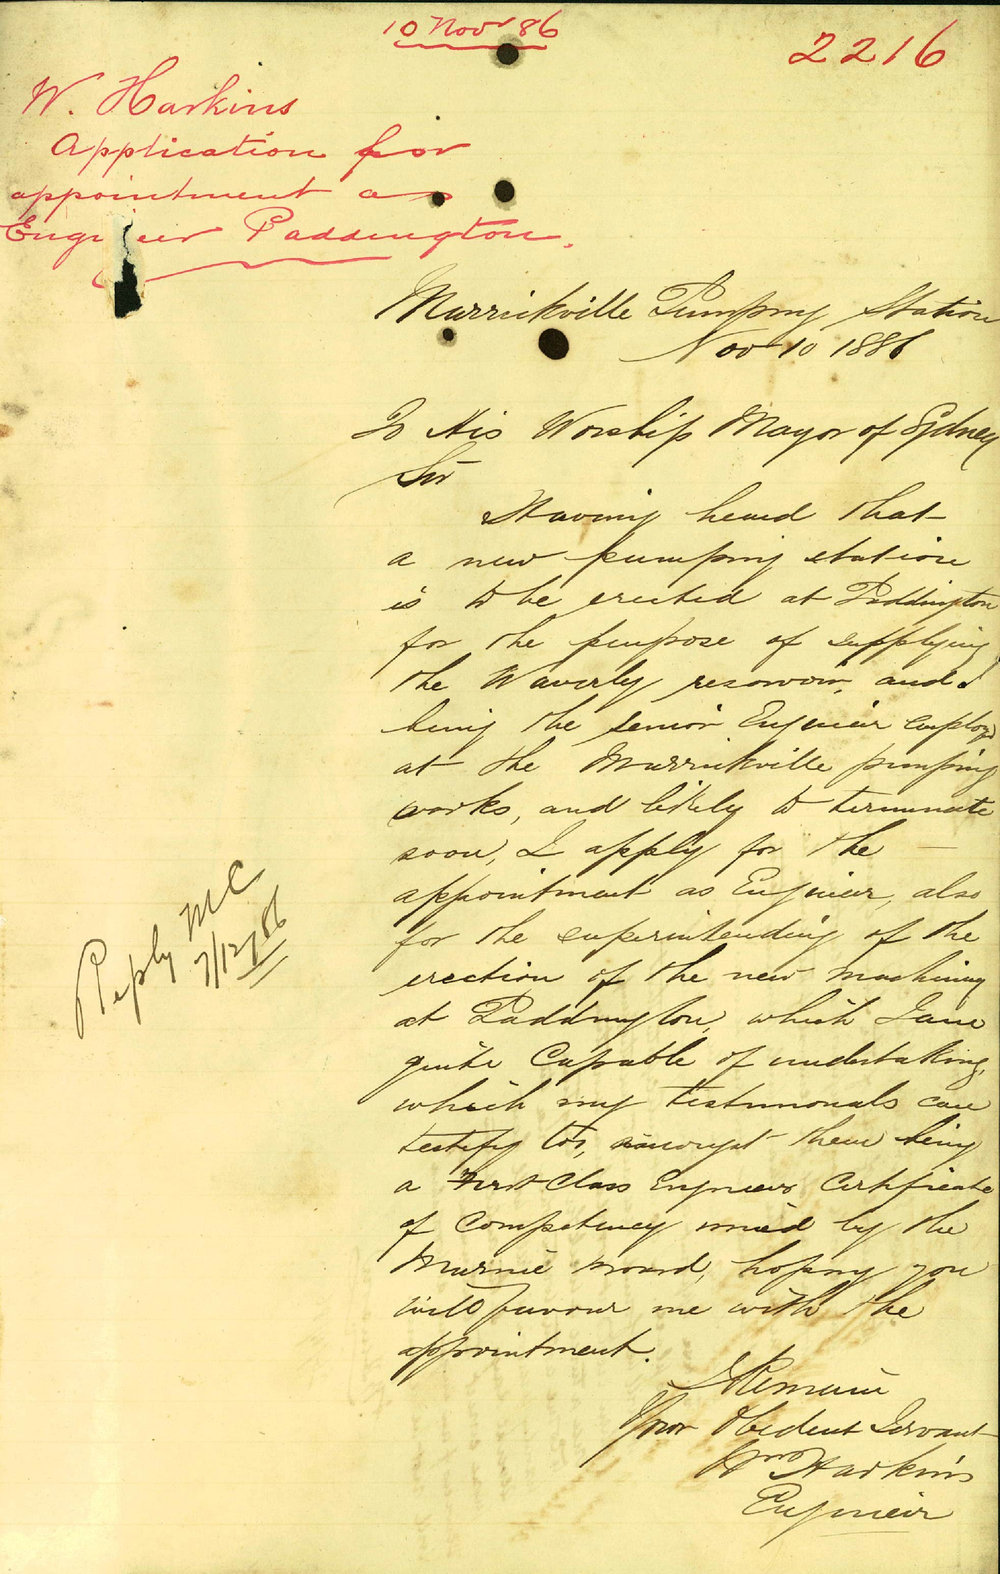 10 Nov 86
2216
W. Harkins
Application for
appointment as
Engineer Paddington.
Marrickville Pumping Station
Nov 10 1886
To His Worship Mayor of Sydney
Sir
Having heard that
a new pumping station
is to be erected at Paddington
for the purpose of supplying
the Waverly reservoir, and
being the senior Engineer employed
at the Marrickville pumping
works, and likely to terminate
soon, I apply for the
appointment as Engineer, also
for the superintending of the
erection of the new machinery
at Paddington, which I am
quite Capable of undertaking,
which my testimonals can
testify too, amongst them being
a First Class Engineers Certificate
of Competency issued by the
Marine Board, hoping you
will favour me with the
appointment.
I Remain
Your Obedient Servant
Wm Harkins
Engineer
Reply MC
7/12/86